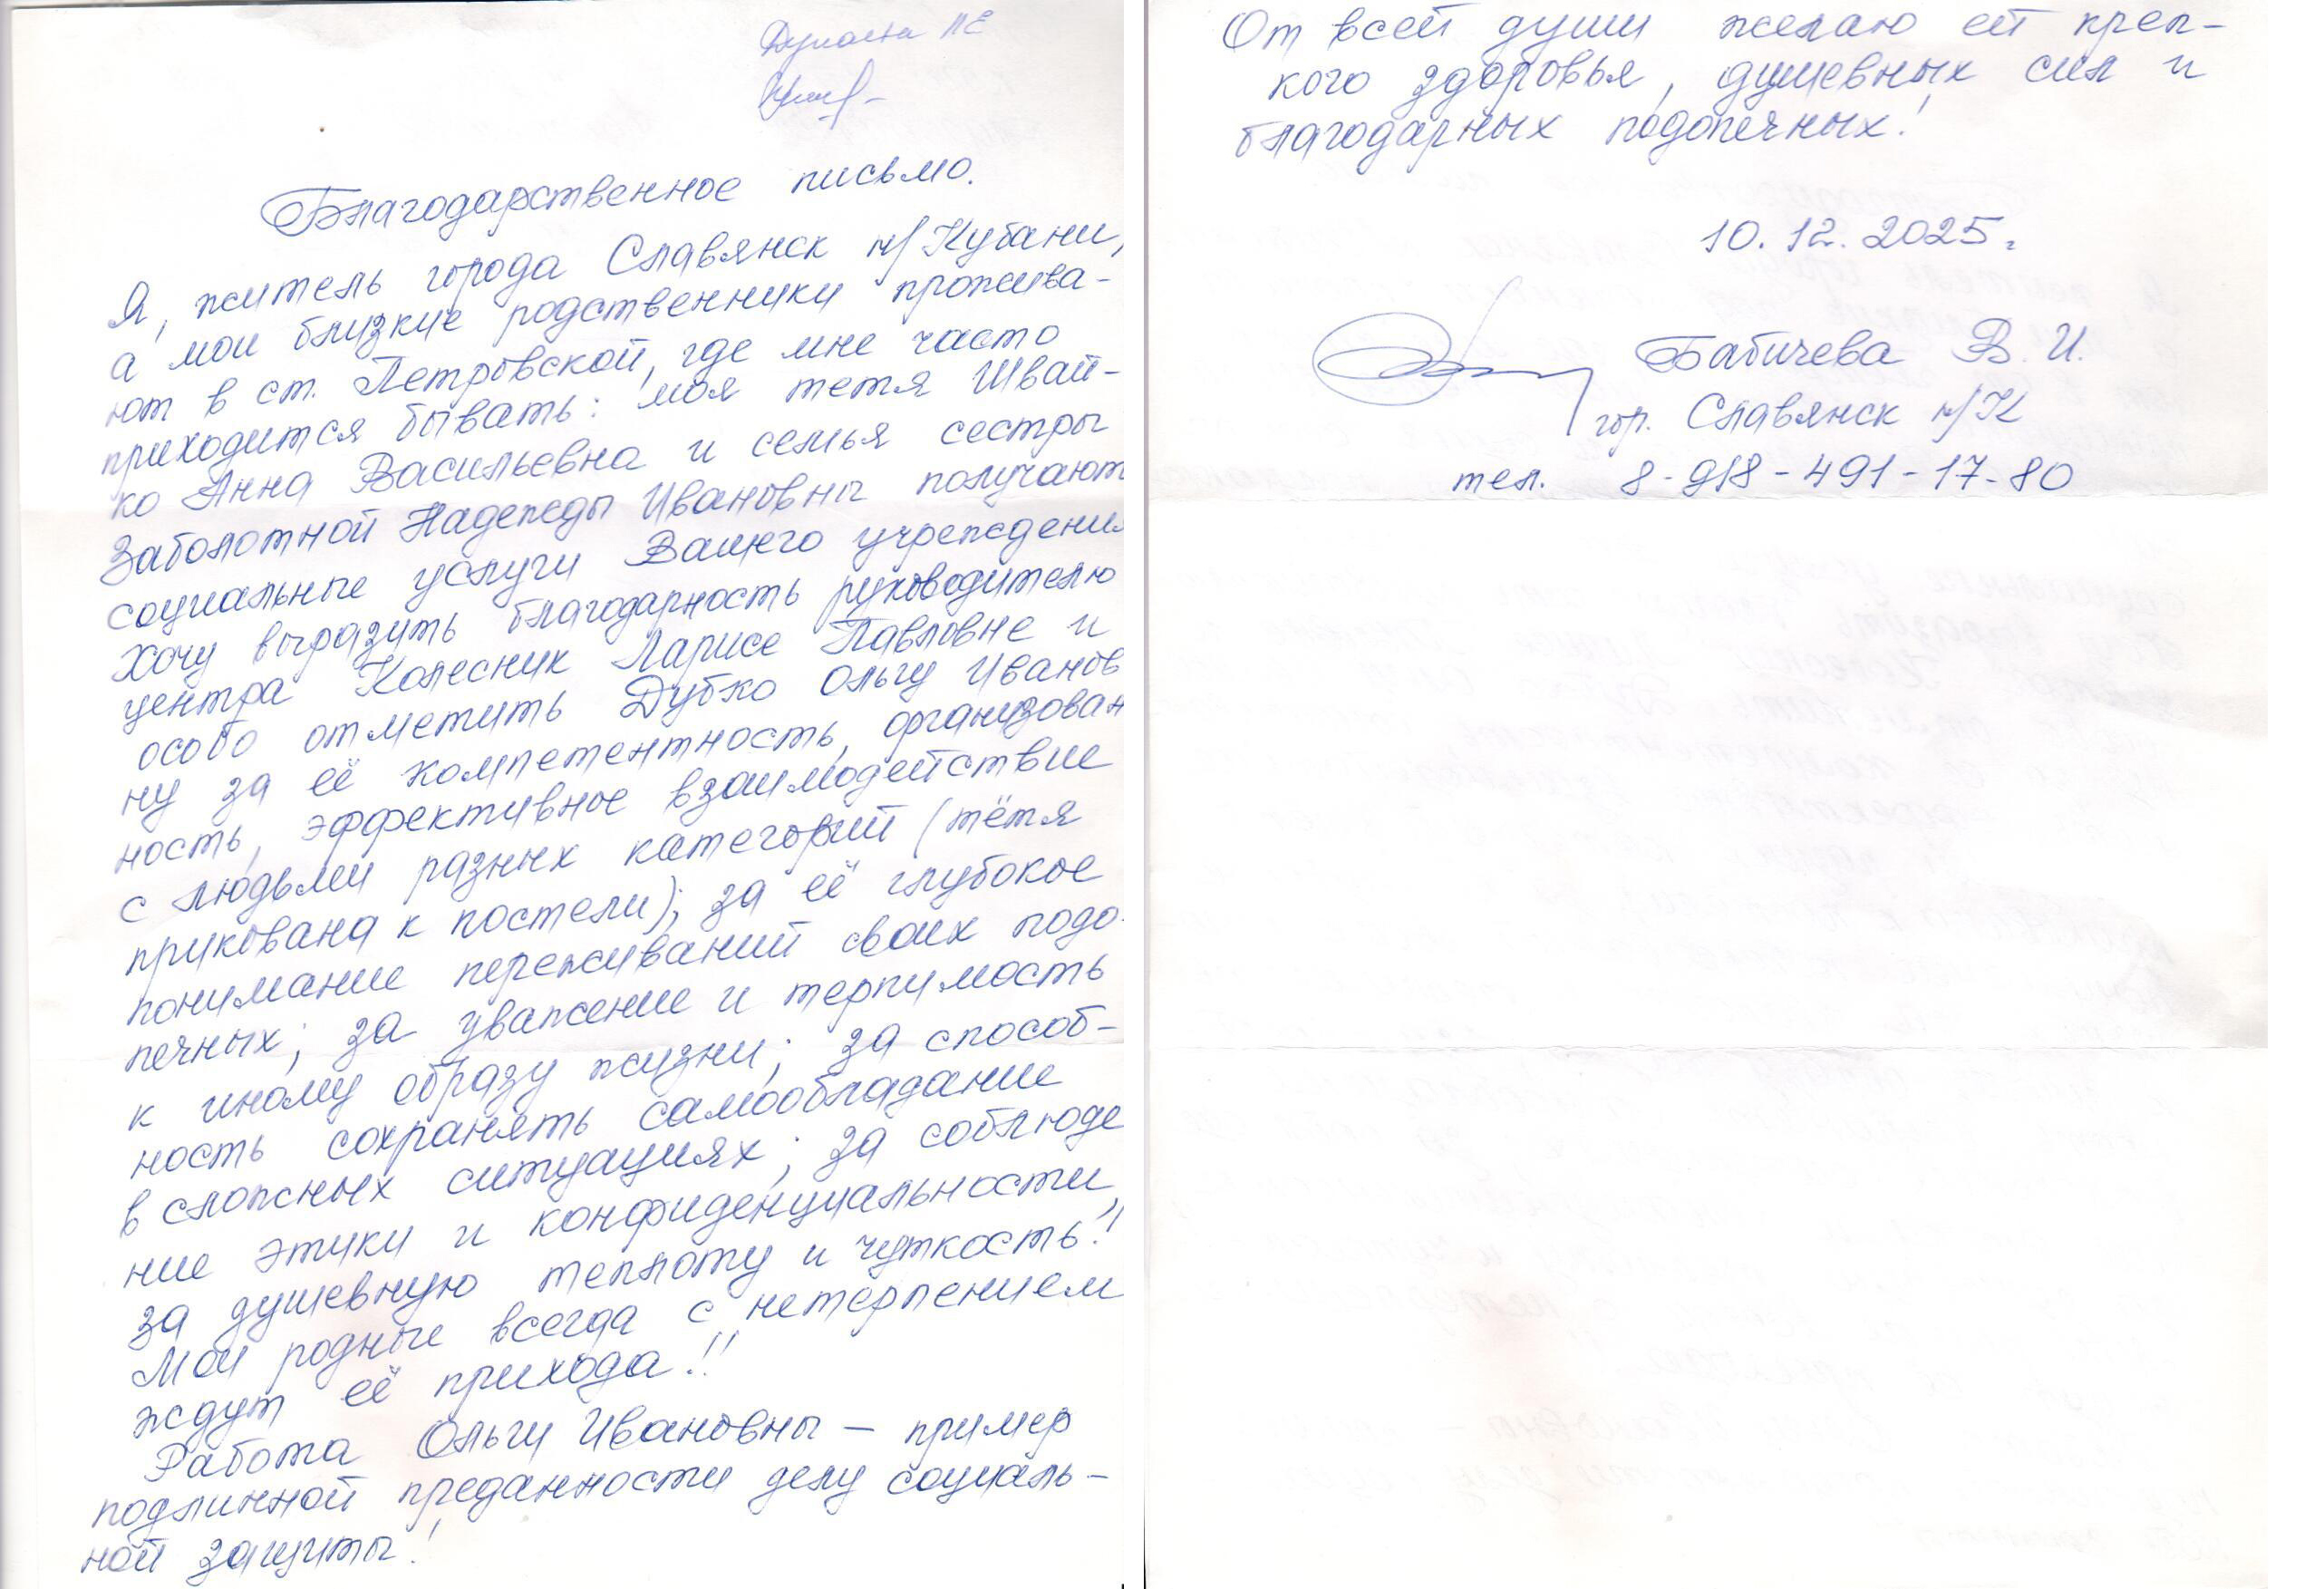 Благодарственное письмо.
Я, житель города Славянск н/Кубани,
а мои близкие родственники прожива-
ют в ст. Петровской, где мне часто
приходится бывать: моя тетя Швай-
ко Анна Васильевна и семья сестры
Заболотной Надежды Ивановны получают
социальные услуги Вашего учреждения
Хочу выразить благодарность руководителю
центра Колесник Ларисе Павловне и
особо отметить Дубко Ольгу Иванов
ну за её компетентность, организован
ность, эффективное взаимодействие
с людьми разных категорий (тётя
прикована к постели); за её глубокое
понимание переживаний своих подо-
печных; за уважение и терпимость
к иному образу жизни; за способ-
ность сохранять самообладание
в сложных ситуациях; за соблюде
ние этики и конфиденциальности,
за душевную теплоту и чуткость!!
Мои родные всегда с нетерпением
ждут её прихода!!
Работа Ольги Ивановны – пример
подлинной преданности делу социаль-
ной защиты!
От всей души желаю ей креп-
кого здоровья, душевных сил и
благодарных подопечных!
10.12.2025г
Бабичева В.И.
гор. Славянск н/К
тел. 8-918-491-17-80